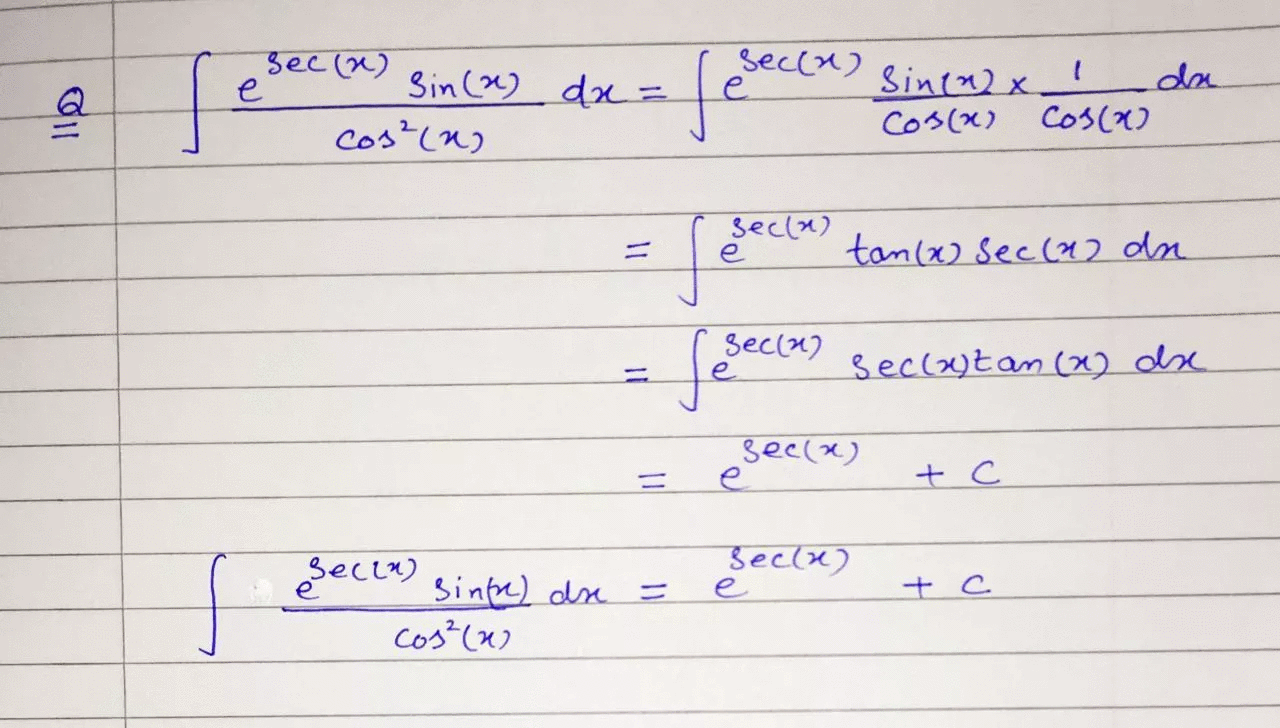 Q ∫ e^sec(x) sin(x) / cos²(x) dx = ∫ e^sec(x) sin(x)/cos(x) × 1/cos(x) dx
= ∫ e^sec(x) tan(x) sec(x) dx
= ∫ e^sec(x) sec(x) tan(x) dx
= e^sec(x) + c
∫ e^sec(x) sin(x) / cos²(x) dx = e^sec(x) + c